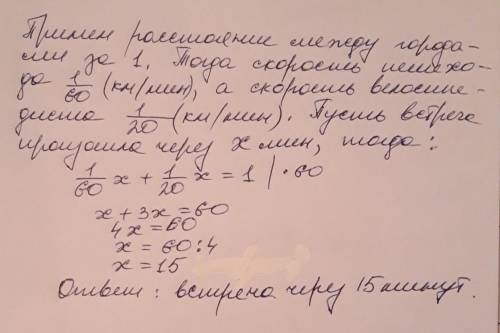 Примем расстояние между города-
ми за 1. Тогда скорость пешехо-
да 1/60 (км/мин), а скорость велосипе-
диста 1/20 (км/мин). Пусть встреча
произошла через x мин, тогда:
1/60 x + 1/20 x = 1 | ·60
x + 3x = 60
4x = 60
x = 60:4
x = 15
Ответ: встреча через 15 минут.